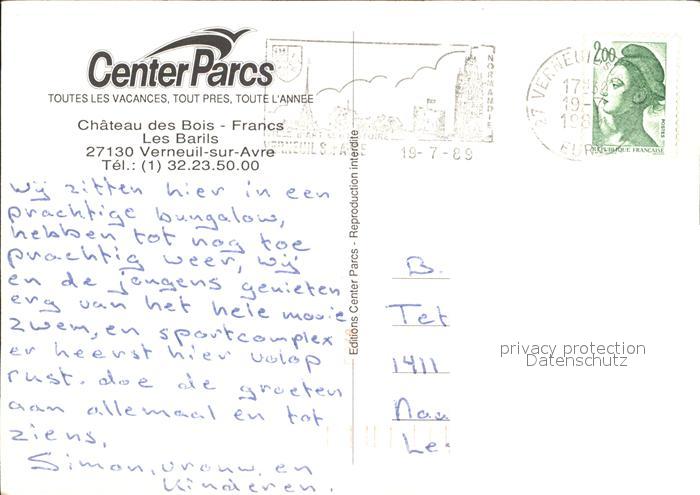 Center Parcs
TOUTES LES VACANCES, TOUT PRES, TOUTE L'ANNEE
Château des Bois - Francs
Les Barils
27130 Verneuil-sur-Avre
Tél.: (1) 32.23.50.00
Wij zitten hier in een
prachtige bungalow,
hebben tot nog toe
prachtig weer, wij
en de jongens genieten
erg van het hele mooie
zwem, en sportcomplex
er heerst hier volop
rust. doe de groeten
aan allemaal en tot
ziens,
Simon, vrouw, en
kinderen.
Editions Center Parcs - Reproduction interdite
NORMANDIE
19-7-89
27 VERNEUIL
19-7
2,00
POSTES
REPUBLIQUE FRANÇAISE
B.
Tet
1411
Naa
privacy protection
Datenschutz